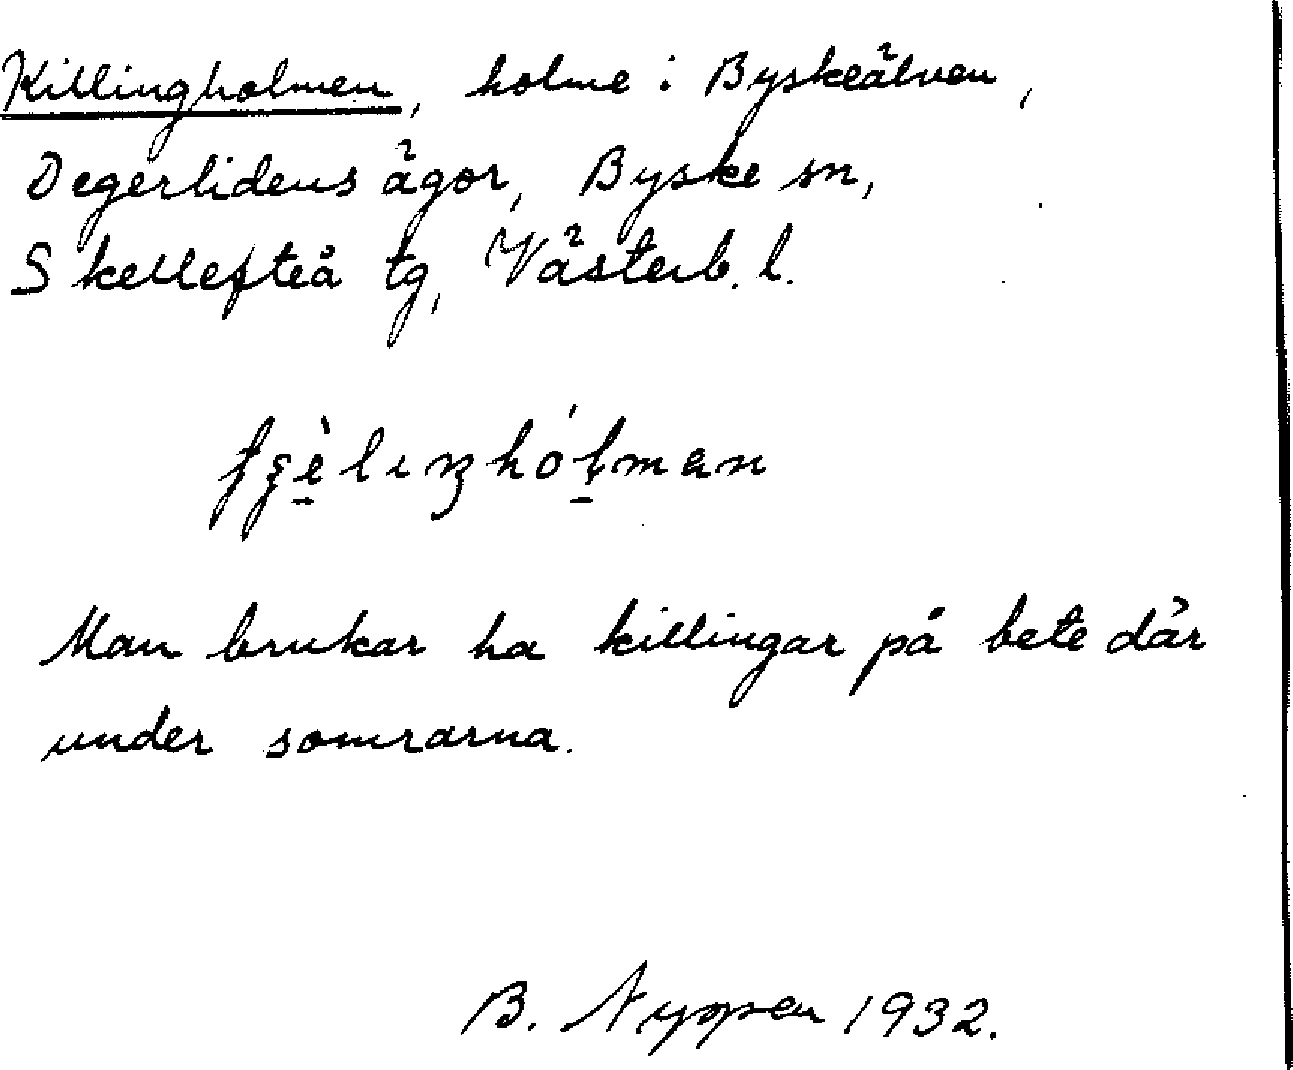 Killingholmen, holme i Byskeälven,
Degerlidens ägor, Byske sn,
Skellefteå tg, Västerb. l.
Man brukar ha killingar på bete där
under somrarna.
B. Nyppen 1932.